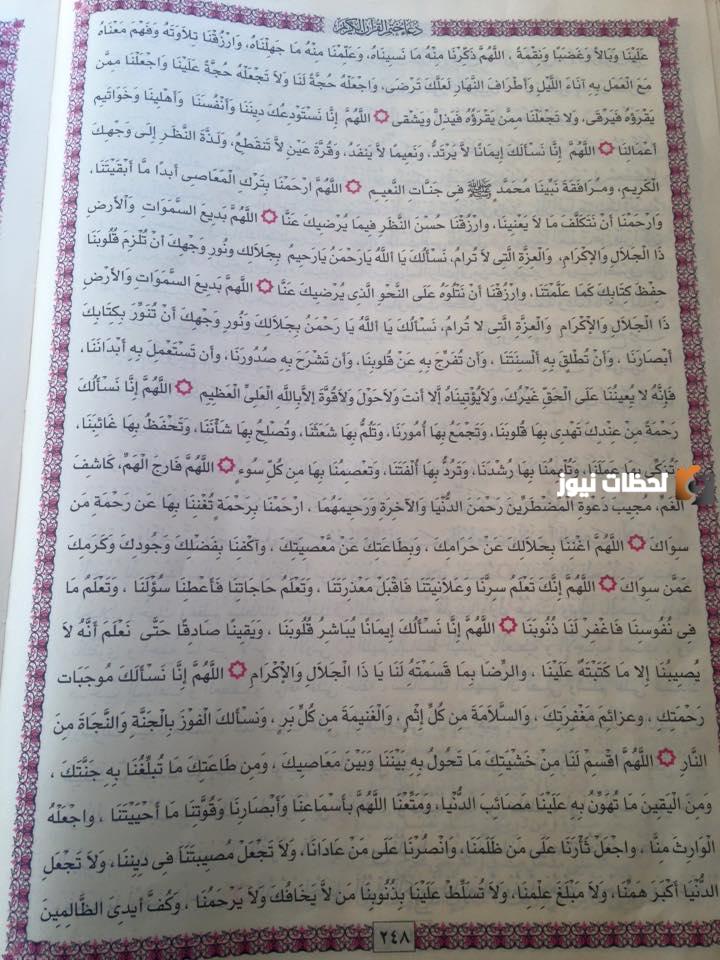 دعاء ختم القرآن الكريم
عَلَيْنَا وَبَالاً وَغَضَبًا وَنِقْمَةً ، اللَّهُمَّ ذَكِّرْنَا مِنْهُ مَا نَسِينَاهُ، وَعَلِّمْنَا مِنْهُ مَا جَهِلْنَاهُ، وَارْزُقْنَا تِلاَوَتَهُ وَفَهْمَ مَعْنَاهُ
مَعَ الْعَمَلِ بِهِ آنَاءَ اللَّيْلِ وَأَطْرَافَ النَّهَارِ لَعَلَّكَ تَرْضَى، وَاجْعَلْهُ حُجَّةً لَنَا وَلاَ تَجْعَلْهُ حُجَّةً عَلَيْنَا وَاجْعَلْنَا مِمَّن
يَقْرَؤُهُ فَيَرْقَى، وَلا تَجْعَلْنَا مِمَّن يَقْرَؤُهُ فَيَذِلُّ وَيَشْقَى ۞ اللَّهُمَّ إِنَّا نَسْتَوْدِعُكَ دِينَنَا وَأَنْفُسَنَا وَأَهْلِينَا وَخَوَاتِيمَ
أَعْمَالِنَا ۞ اللَّهُمَّ إِنَّا نَسْأَلُكَ إِيمَانًا لاَ يَرْتَدُّ، وَنَعِيمًا لاَ يَنفَدُ، وَقُرَّةَ عَيْنٍ لاَ تَنقَطِعُ، وَلَذَّةَ النَّظَرِ إِلَى وَجْهِكَ
الْكَرِيمِ، وَمُرَافَقَةَ نَبِيِّنَا مُحَمَّدٍ ﷺ فِي جَنَّاتِ النَّعِيمِ ۞ اللَّهُمَّ ارْحَمْنَا بِتَرْكِ الْمَعَاصِي أَبَدًا مَّا أَبْقَيْتَنَا،
وَارْحَمْنَا أَنْ نَتَكَلَّفَ مَا لاَ يَعْنِينَا، وَارْزُقْنَا حُسْنَ النَّظَرِ فِيمَا يُرْضِيكَ عَنَّا ۞ اللَّهُمَّ بَدِيعَ السَّمَوَاتِ وَالأَرْضِ
ذَا الْجَلاَلِ وَالإِكْرَامِ، وَالْعِزَّةِ الَّتِي لاَ تُرَامُ، نَسْأَلُكَ يَا اللَّهُ يَارَحْمَنُ يَارَحِيمُ بِجَلاَلِكَ وَنُورِ وَجْهِكَ أَنْ تُلْزِمَ قُلُوبَنَا
حِفْظَ كِتَابِكَ كَمَا عَلَّمْتَنَا، وَارْزُقْنَا أَنْ نَتْلُوَهُ عَلَى النَّحْوِ الَّذِي يُرْضِيكَ عَنَّا ۞ اللَّهُمَّ بَدِيعَ السَّمَوَاتِ وَالأَرْضِ
ذَا الْجَلاَلِ وَالإِكْرَامِ وَالْعِزَّةِ الَّتِي لاَ تُرَامُ، نَسْأَلُكَ يَا اللَّهُ يَا رَحْمَنُ بِجَلاَلِكَ وَنُورِ وَجْهِكَ أَنْ تُنَوِّرَ بِكِتَابِكَ
أَبْصَارَنَا ، وَأَنْ تُطْلِقَ بِهِ أَلْسِنَتَنَا ، وَأَن تُفَرِّجَ بِهِ عَنْ قُلُوبِنَا، وَأَن تَشْرَحَ بِهِ صُدُورَنَا، وَأَن تَسْتَعْمِلَ بِهِ أَبْدَانَنَا،
فَإِنَّهُ لا يُعِينُنَا عَلَى الْحَقِّ غَيْرُكَ، وَلاَ يُؤْتِينَاهُ إِلاَّ أَنتَ وَلاَحَوْلَ وَلاَقُوَّةَ إِلاَّبِاللَّهِ الْعَلِيِّ الْعَظِيمِ ۞ اللَّهُمَّ إِنَّا نَسْأَلُكَ
رَحْمَةً مِنْ عِندِكَ تَهْدِي بِهَا قُلُوبَنَا، وَتَجْمَعُ بِهَا أُمُورَنَا، وَتَلُمُّ بِهَا شَعَثَنَا، وَتُصْلِحُ بِهَا شَأْنَنَا، وَتَحْفَظُ بِهَا غَائِبَنَا،
وَتُزَكِّي بِهَا عَمَلَنَا، وَتُلْهِمُنَا بِهَا رُشْدَنَا، وَتَرُدُّ بِهَا أُلْفَتَنَا، وَتَعْصِمُنَا بِهَا مِن كُلِّ سُوءٍ ۞ اللَّهُمَّ فَارِجَ الْهَمِّ، كَاشِفَ
لحظات نيوز
الْغَمِّ، مُجِيبَ دَعْوَةِ الْمُضْطَرِّينَ رَحْمَنَ الدُّنْيَا وَالآخِرَةِ وَرَحِيمَهُمَا ، ارْحَمْنَا بِرَحْمَةٍ تُغْنِنَا بِهَا عَن رَحْمَةِ مَن
سِوَاكَ ۞ اللَّهُمَّ اغْنِنَا بِحَلاَلِكَ عَنْ حَرَامِكَ ، وَبِطَاعَتِكَ عَنْ مَعْصِيَتِكَ ، وَاكْفِنَا بِفَضْلِكَ وَجُودِكَ وَكَرَمِكَ
عَمَّن سِوَاكَ ۞ اللَّهُمَّ إِنَّكَ تَعْلَمُ سِرَّنَا وَعَلاَنِيَتَنَا فَاقْبَلْ مَعْذِرَتَنَا ، وَتَعْلَمُ حَاجَاتِنَا فَأَعْطِنَا سُؤْلَنَا ، وَتَعْلَمُ مَا
فِي نُفُوسِنَا فَاغْفِرْ لَنَا ذُنُوبَنَا ۞ اللَّهُمَّ إِنَّا نَسْأَلُكَ إِيمَانًا يُبَاشِرُ قُلُوبَنَا ، وَيَقِينًا صَادِقًا حَتَّى نَعْلَمَ أَنَّهُ لاَ
يُصِيبُنَا إِلا مَا كَتَبْتَهُ عَلَيْنَا ، وَالرِّضَا بِمَا قَسَمْتَهُ لَنَا يَا ذَا الْجَلاَلِ وَالإِكْرَامِ ۞ اللَّهُمَّ إِنَّا نَسْأَلُكَ مُوجِبَاتِ
رَحْمَتِكَ ، وَعَزَائِمَ مَغْفِرَتِكَ ، وَالسَّلاَمَةَ مِن كُلِّ إِثْمٍ ، وَالْغَنِيمَةَ مِن كُلِّ بَرٍّ ، وَنَسْأَلُكَ الْفَوْزَ بِالْجَنَّةِ وَالنَّجَاةَ مِنَ
النَّارِ ۞ اللَّهُمَّ اقْسِمْ لَنَا مِنْ خَشْيَتِكَ مَا تَحُولُ بِهِ بَيْنَنَا وَبَيْنَ مَعَاصِيكَ ، وَمِن طَاعَتِكَ مَا تُبَلِّغُنَا بِهِ جَنَّتَكَ ،
وَمِنَ الْيَقِينِ مَا تُهَوِّنُ بِهِ عَلَيْنَا مَصَائِبَ الدُّنْيَا، وَمَتِّعْنَا اللَّهُمَّ بِأَسْمَاعِنَا وَأَبْصَارِنَا وَقُوَّتِنَا مَا أَحْيَيْتَنَا ، وَاجْعَلْهُ
الْوَارِثَ مِنَّا ، وَاجْعَلْ ثَأْرَنَا عَلَى مَن ظَلَمَنَا، وَانْصُرْنَا عَلَى مَنْ عَادَانَا، وَلاَ تَجْعَلْ مُصِيبَتَنَا فِي دِينِنَا، وَلاَ تَجْعَلِ
الدُّنْيَا أَكْبَرَ هَمِّنَا، وَلاَ مَبْلَغَ عِلْمِنَا، وَلاَ تُسَلِّطْ عَلَيْنَا بِذُنُوبِنَا مَن لاَّ يَخَافُكَ وَلاَ يَرْحَمُنَا ، وَكُفَّ أَيْدِيَ الظَّالِمِينَ
٢٤٨